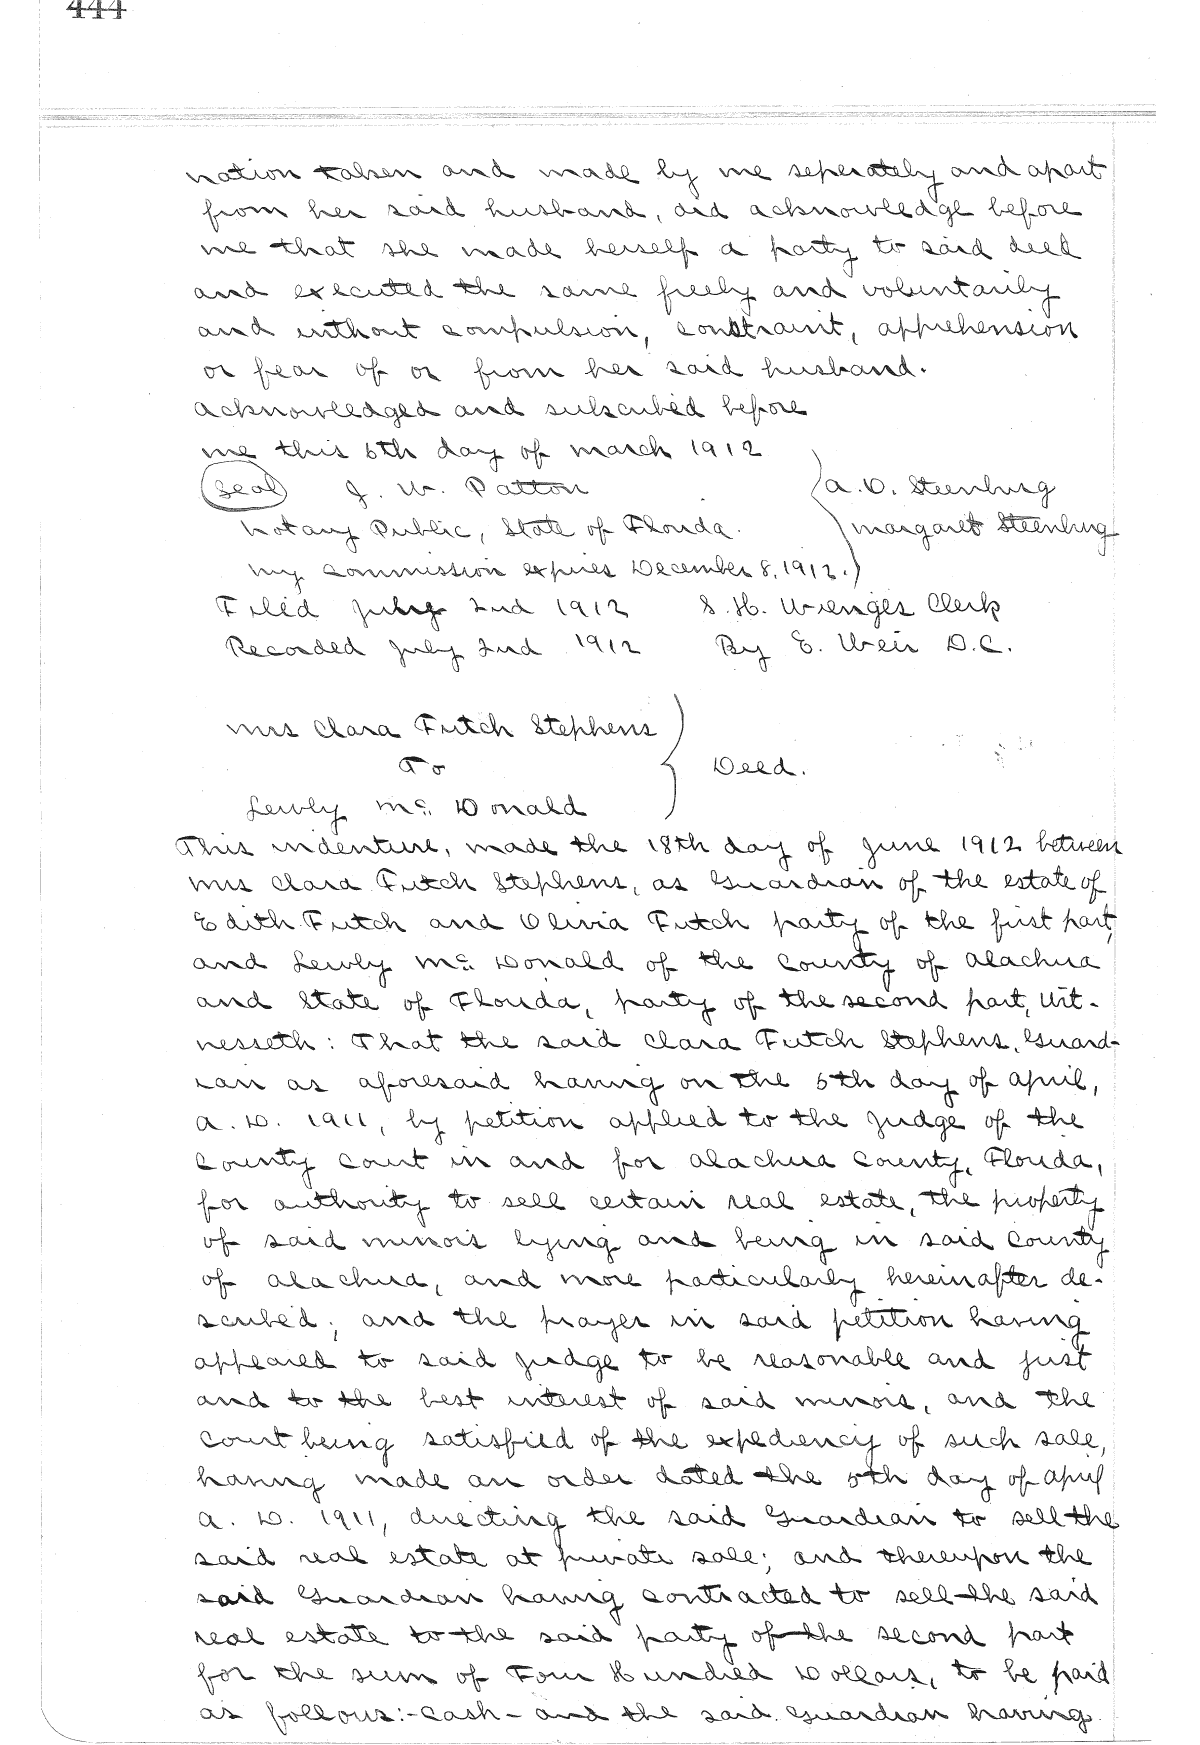 444
nation taken and made by me seperately and apart
from her said husband, did acknowledge before
me that she made herself a party to said deed
and executed the same freely and voluntarily
and without compulsion, constraint, apprehension
or fear of or from her said husband.
Acknowledged and subscribed before
me this 6th day of March 1912
(Seal) J. W. Patton A. O. Steenburg
Notary Public, State of Florida. Margaret Steenburg
My commission expires December 8, 1912.
Filed July 2nd 1912 S. H. Wienges Clerk
Recorded July 2nd 1912 By E. Weir D.C.
Mrs Clara Futch Stephens
To Deed.
Lewly Mc. Donald
This indenture, made the 18th day of June 1912 between
Mrs Clara Futch Stephens, as Guardian of the estate of
Edith Futch and Olivia Futch party of the first part,
and Lewly Mc. Donald of the County of Alachua
and State of Florida, party of the second part, Wit-
nesseth: That the said Clara Futch Stephens, Guard-
ian as aforesaid having on the 5th day of April,
A. D. 1911, by petition applied to the Judge of the
County Court in and for Alachua County, Florida,
for authority to sell certain real estate, the property
of said minors lying and being in said County
of Alachua, and more particularly hereinafter de-
scribed; and the prayer in said petition having
appeared to said Judge to be reasonable and just
and to the best interest of said minors, and the
Court being satisfied of the expediency of such sale,
having made an order dated the 5th day of April
A. D. 1911, directing the said Guardian to sell the
said real estate at private sale; and thereupon the
said Guardian having contracted to sell the said
real estate to the said party of the second part
for the sum of Four Hundred Dollars, to be paid
as follows:- Cash - and the said Guardian having